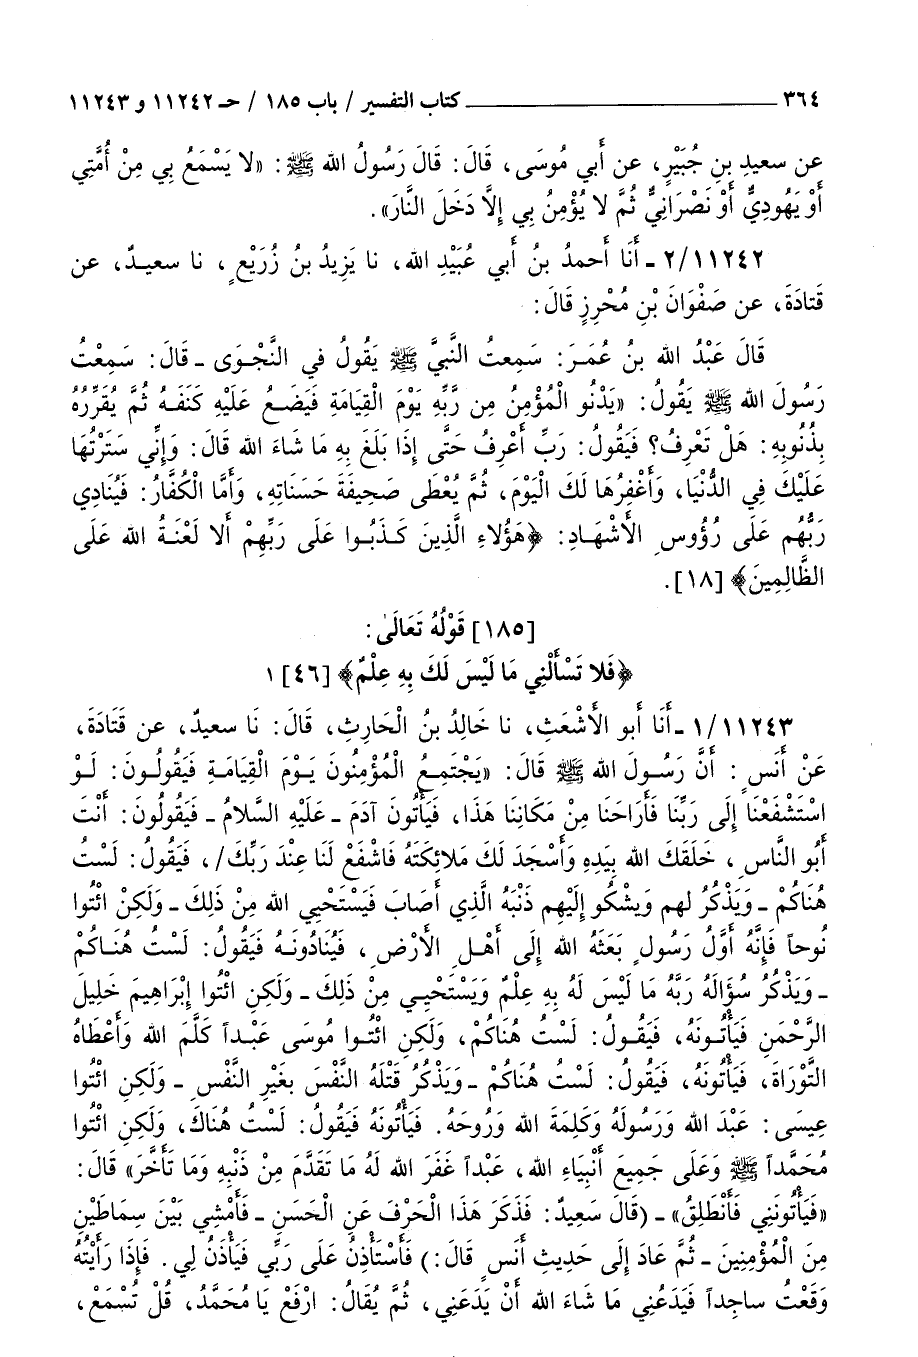 ٣٦٤ ـــــــــــــــــــــــــ كتاب التفسير / باب ١٨٥ / حـ ١١٢٤٢ و ١١٢٤٣
عن سعيدِ بنِ جُبَيْرٍ، عن أبي مُوسَى، قَالَ: قَالَ رَسُولُ الله ﷺ: «لا يَسْمَعُ بِي مِنْ أُمَّتِي
أَوْ يَهُودِيٌّ أَوْ نَصْرَانِيٌّ ثُمَّ لا يُؤْمِنُ بِي إِلَّا دَخَلَ النَّارَ».
٢/١١٢٤٢ ـ أَنَا أحمدُ بنُ أبي عُبَيْدِ الله، نا يَزِيدُ بنُ زُرَيْعٍ، نا سعيدٌ، عن
قَتادَةَ، عن صَفْوَانَ بْنِ مُحْرِزٍ قَالَ:
قَالَ عَبْدُ الله بنُ عُمَرَ: سَمِعتُ النَّبِيَّ ﷺ يَقُولُ في النَّجْوَى ـ قَالَ: سَمِعْتُ
رَسُولَ الله ﷺ يَقُولُ: «يَدْنُو الْمُؤْمِنُ مِن رَّبِّهِ يَوْمَ الْقِيَامَةِ فَيَضَعُ عَلَيْهِ كَنَفَهُ ثُمَّ يُقَرِّرُهُ
بِذُنُوبِهِ: هَلْ تَعْرِفُ؟ فَيَقُولُ: رَبِّ أَعْرِفُ حَتَّى إِذَا بَلَغَ بِهِ مَا شَاءَ الله قَالَ: وَإِنِّي سَتَرْتُهَا
عَلَيْكَ فِي الدُّنْيَا، وَأَغْفِرُهَا لَكَ الْيَوْمَ، ثُمَّ يُعْطَى صَحِيفَةَ حَسَنَاتِهِ، وَأَمَّا الْكُفَّارُ: فَيُنَادِي
رَبُّهُم عَلَى رُؤُوسِ الأَشْهَادِ: ﴿هَؤُلاءِ الَّذِينَ كَذَبُوا عَلَى رَبِّهِمْ أَلا لَعْنَةُ الله عَلَى
الظَّالِمِينَ﴾ [١٨].
[١٨٥] قَوْلُهُ تَعَالَىٰ:
﴿فَلا تَسْأَلْنِي مَا لَيْسَ لَكَ بِهِ عِلْمٌ﴾ [٤٦] ١
١/١١٢٤٣ ـ أَنَا أبو الأَشْعَثِ، نا خَالِدُ بنُ الْحَارِثِ، قَالَ: نَا سعيدٌ، عن قَتَادَةَ،
عَنْ أَنَسٍ: أَنَّ رَسُولَ الله ﷺ قَالَ: «يَجْتَمِعُ الْمُؤْمِنُونَ يَوْمَ الْقِيَامَةِ فَيَقُولُونَ: لَوْ
اسْتَشْفَعْنَا إِلَى رَبِّنَا فَأَرَاحَنَا مِنْ مَكَانِنَا هَذَا، فَيَأْتُونَ آدَمَ ـ عَلَيْهِ السَّلامُ ـ فَيَقُولُونَ: أَنْتَ
أَبُو النَّاسِ، خَلَقَكَ الله بِيَدِهِ وَأَسْجَدَ لَكَ مَلائِكَتَهُ فَاشْفَعْ لَنَا عِنْدَ رَبِّكَ/، فَيَقُولُ: لَسْتُ
هُنَاكُمْ ـ وَيَذْكُرُ لهم وَيشْكُو إِلَيْهِم ذَنْبَهُ الَّذِي أَصَابَ فَيَسْتَحْيِي الله مِنْ ذَلِكَ ـ وَلَكِنْ ائْتُوا
نُوحاً فَإِنَّهُ أَوَّلُ رَسُولٍ بَعَثَهُ الله إِلَى أَهْلِ الأَرْضِ، فَيُنَادُونَهُ فَيَقُولُ: لَسْتُ هُنَاكُمْ
ـ وَيَذْكُرُ سُؤَالَهُ رَبَّهُ مَا لَيْسَ لَهُ بِهِ عِلْمٌ وَيَسْتَحْيِي مِنْ ذَلِكَ ـ وَلَكِنِ ائْتُوا إِبْرَاهِيمَ خَلِيلَ
الرَّحْمَنِ فَيَأْتُونَهُ، فَيَقُولُ: لَسْتُ هُنَاكُمْ، وَلَكِنِ ائْتُوا مُوسَى عَبْداً كَلَّمَ الله وَأَعْطَاهُ
التَّوْرَاةَ، فَيَأْتُونَهُ، فَيَقُولُ: لَسْتُ هُنَاكُمْ ـ وَيَذْكُرُ قَتْلَهُ النَّفْسَ بِغَيْرِ النَّفْسِ ـ وَلَكِنِ ائْتُوا
عِيسَى: عَبْدَ الله وَرَسُولَهُ وَكَلِمَةَ الله وَرُوحَهُ. فَيَأْتُونَهُ فَيَقُولُ: لَسْتُ هُنَاكَ، وَلَكِنِ ائْتُوا
مُحَمَّداً ﷺ وَعَلَى جَمِيعِ أَنْبِيَاءِ الله، عَبْداً غَفَرَ الله لَهُ مَا تَقَدَّمَ مِنْ ذَنْبِهِ وَمَا تَأَخَّرَ» قَالَ:
«فَيَأْتُونَنِي فَأَنْطَلِقُ» ـ (قَالَ سَعِيدٌ: فَذَكَرَ هَذَا الْحَرْفَ عَنِ الْحَسَنِ ـ فَأَمْشِي بَيْنَ سِمَاطَيْنِ
مِنَ الْمُؤْمِنِينَ ـ ثُمَّ عَادَ إِلَى حَدِيثِ أَنَسٍ قَالَ:) فَأَسْتَأْذِنُ عَلَى رَبِّي فَيَأْذَنُ لِي. فَإِذَا رَأَيْتُهُ
وَقَعْتُ ساجِداً فَيَدَعُنِي مَا شَاءَ الله أَنْ يَدَعَنِي، ثُمَّ يُقَالُ: ارْفَعْ يَا مُحَمَّدُ، قُلْ تُسْمَعْ،